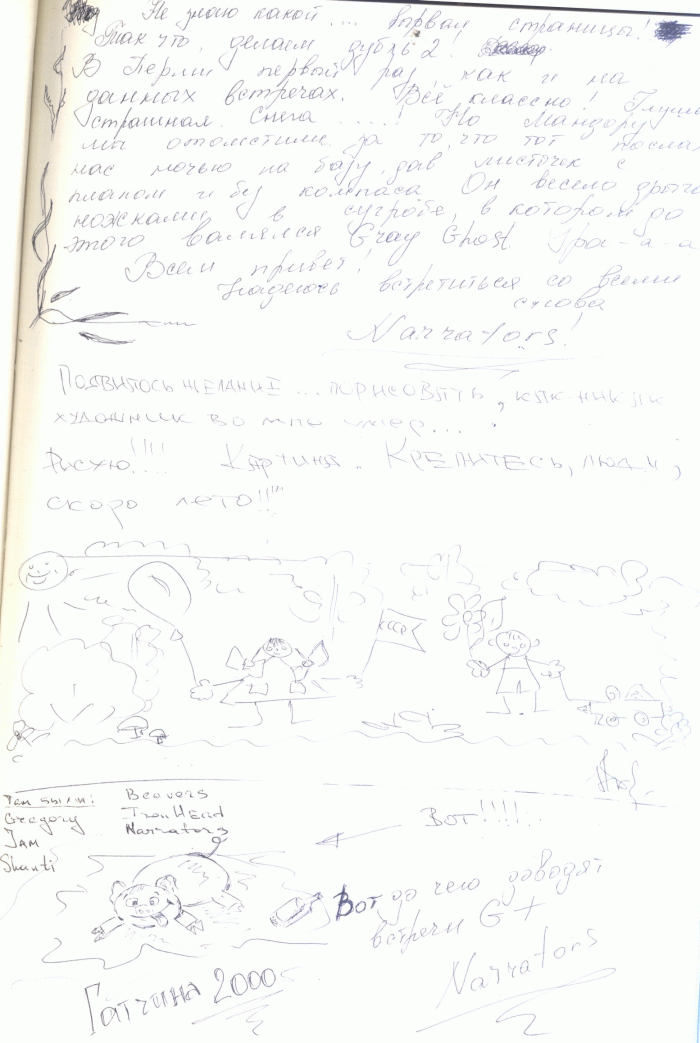 Не знаю какой .... вырвал страницы!
Так что, делаем дубль 2!
В Перми первый раз, как и на
данных встречах. Всё классно!
страшная. Снега .....! Но Мандору
мы отомстили за то, что тот послал
нас ночью на базу, дав листочек с
планом и без компаса. Он весело
ножками в сугробе, в котором до
этого валялся Gray Ghost. Ура-а-а
Всем привет!
Надеюсь встретиться со всеми
снова
Narrators!
Появилось желание ... порисовать, как-никак
художник во мне умер...
Рисую!!!! Картина. Крепитесь, люди,
скоро лето!!!
СССР
Там были: Beavers
Gregory IronHead
Jam Narrators
Shanti
Вот!!!!..
Вот до чего доводят
встречи G+
Narrators
Гатчина 2000